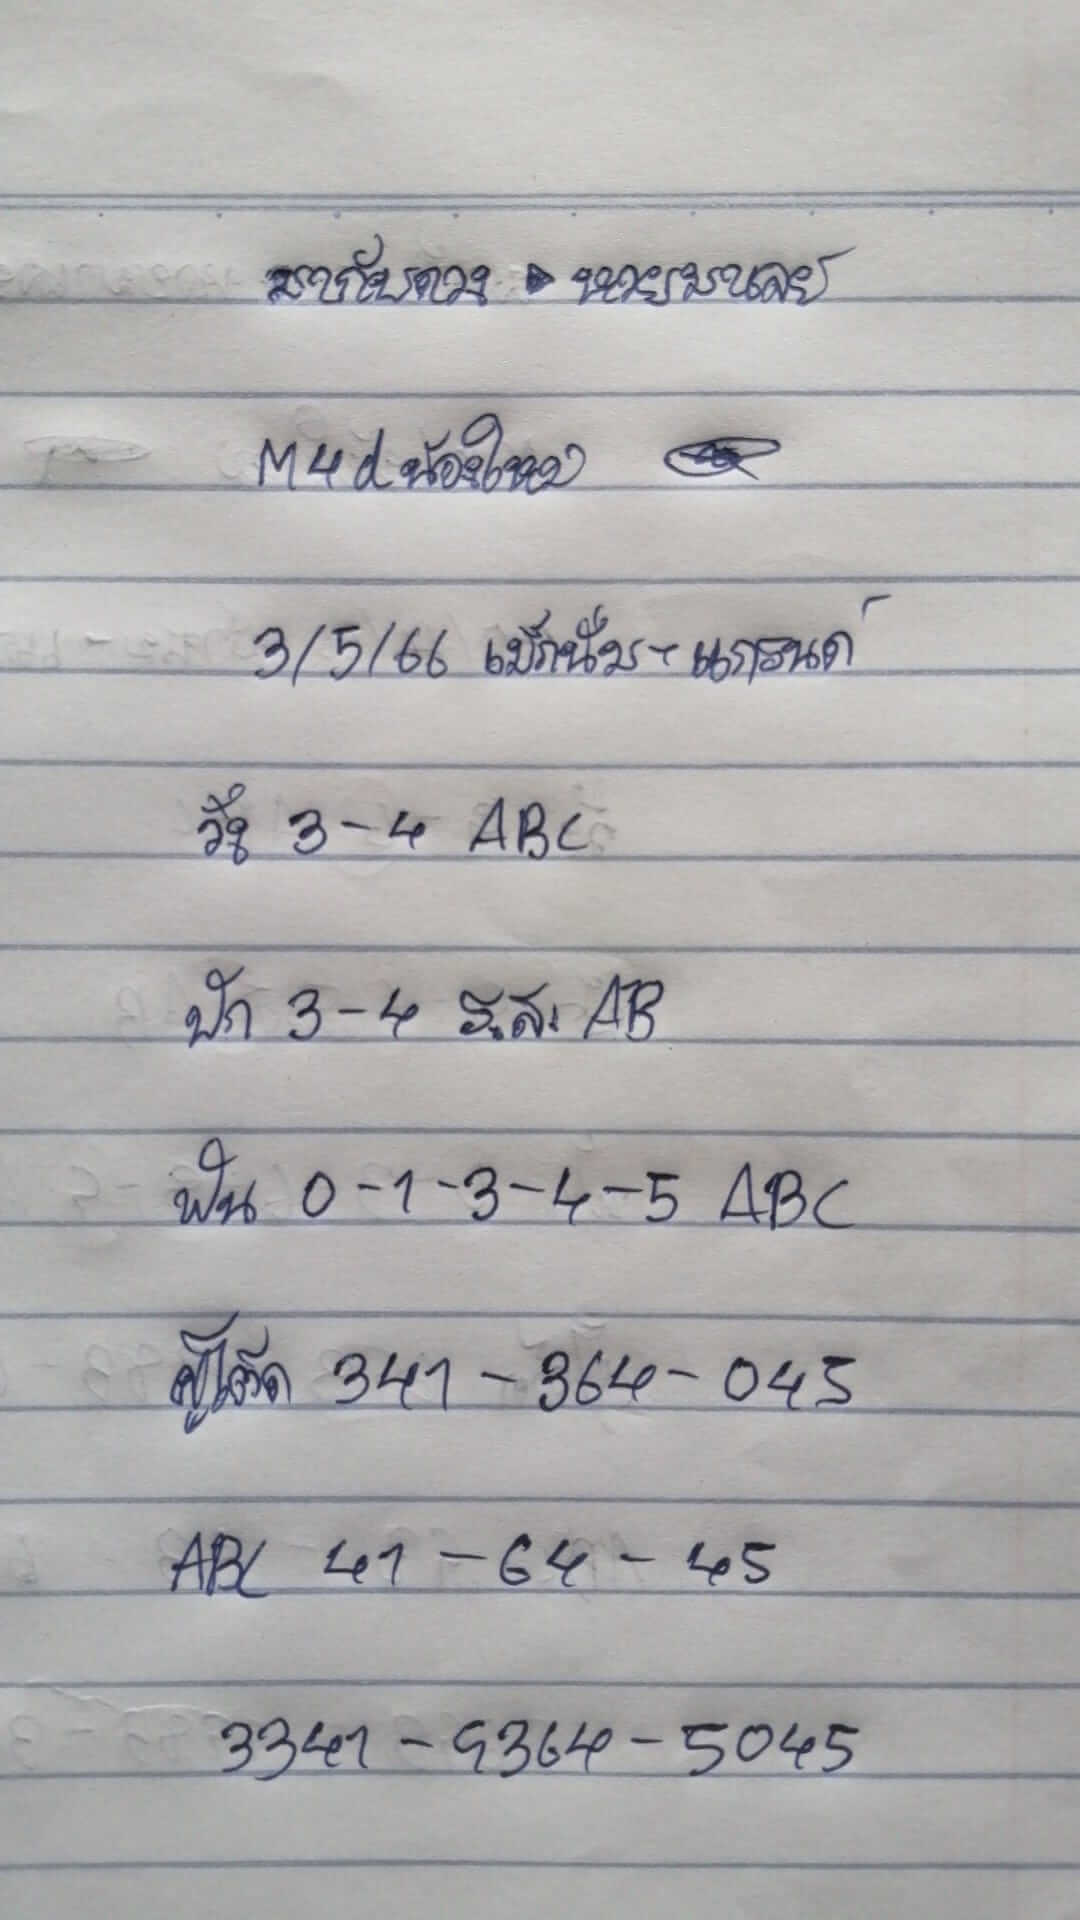 มากับดวง นายมาเลย์
M4d น้องใหม่
3/5/66 แม็กนั่ม - แกรนด์
วิ่ง 3-4 ABC
ปัก 3-4 ร.ส. AB
ฟัน 0-1-3-4-5 ABC
341-364-045
ABC 41-64-45
3341-9364-5045